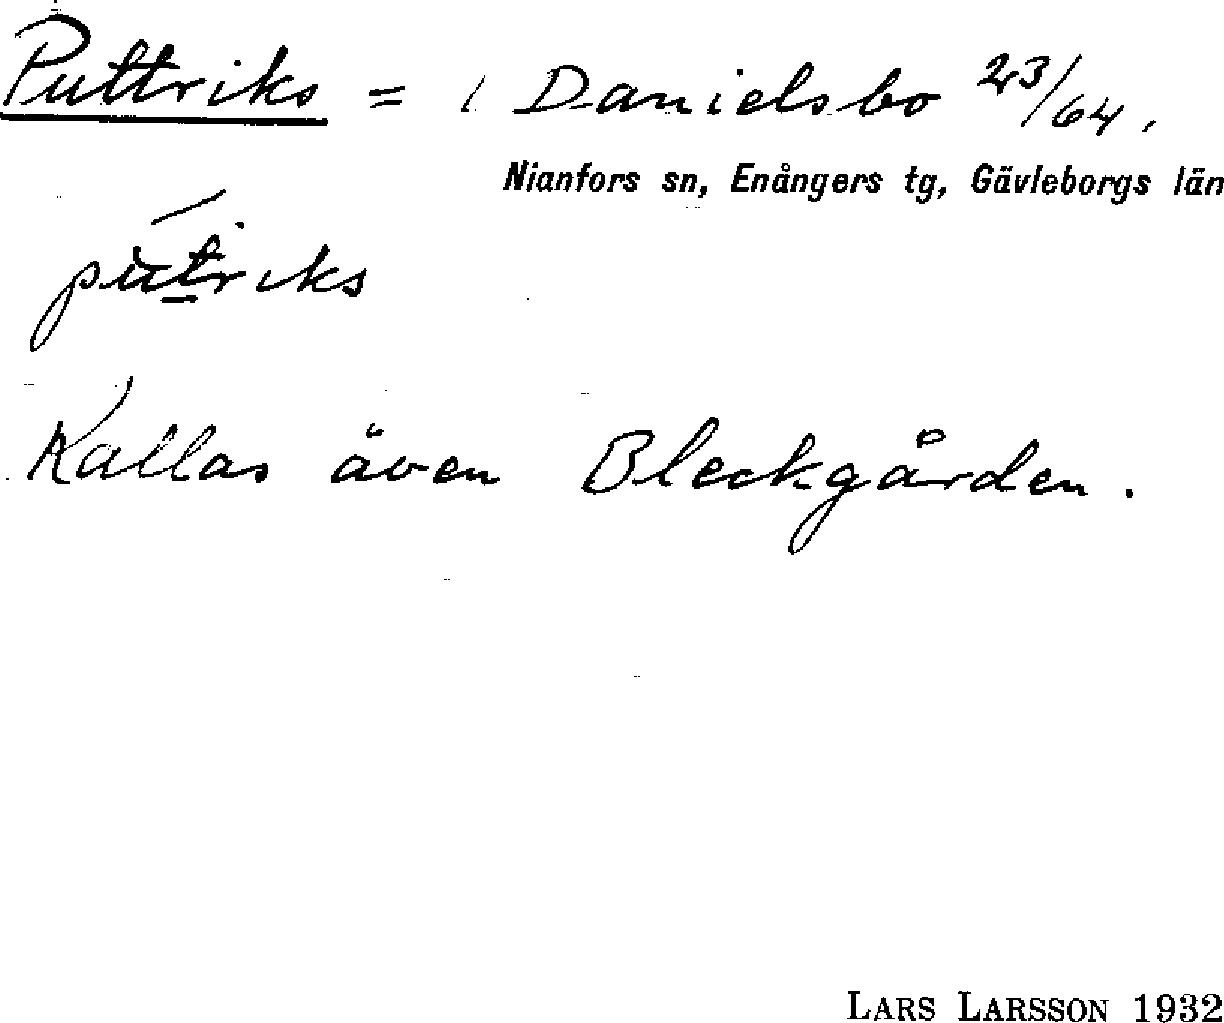 Puttriks = 1 Danielsbo 23/64.
Nianfors sn, Enångers tg, Gävleborgs län
putriks
Kallas även Bleckgården.
LARS LARSSON 1932